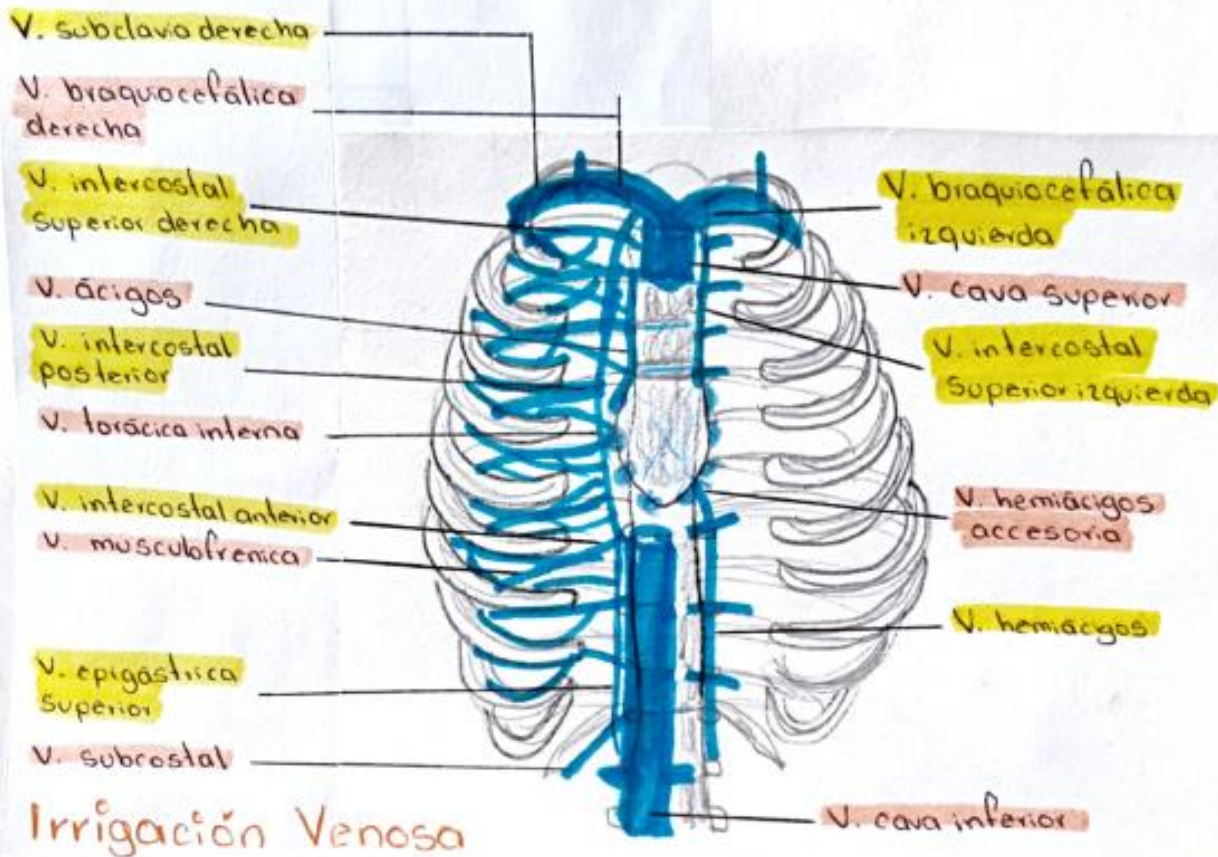 V. subclavia derecha
V. braquiocefálica
derecha
V. intercostal
superior derecha
V. ácigos
V. intercostal
posterior
V. torácica interna
V. intercostal anterior
V. musculofrenica
V. epigástrica
Superior
V. subcostal
Irrigación Venosa
V. braquiocefálica
izquierda
V. cava superior
V. intercostal
Superior izquierda
V. hemiácigos
accesoria
V. hemiácigos
V. cava inferior